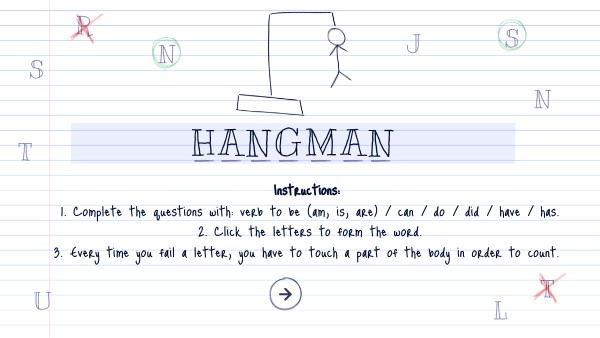 R
N
J
S
S
N
T
HANGMAN
Instructions:
1. Complete the questions with: verb to be (am, is, are) / can / do / did / have / has.
2. Click the letters to form the word.
3. Every time you fail a letter, you have to touch a part of the body in order to count.
U
T
L